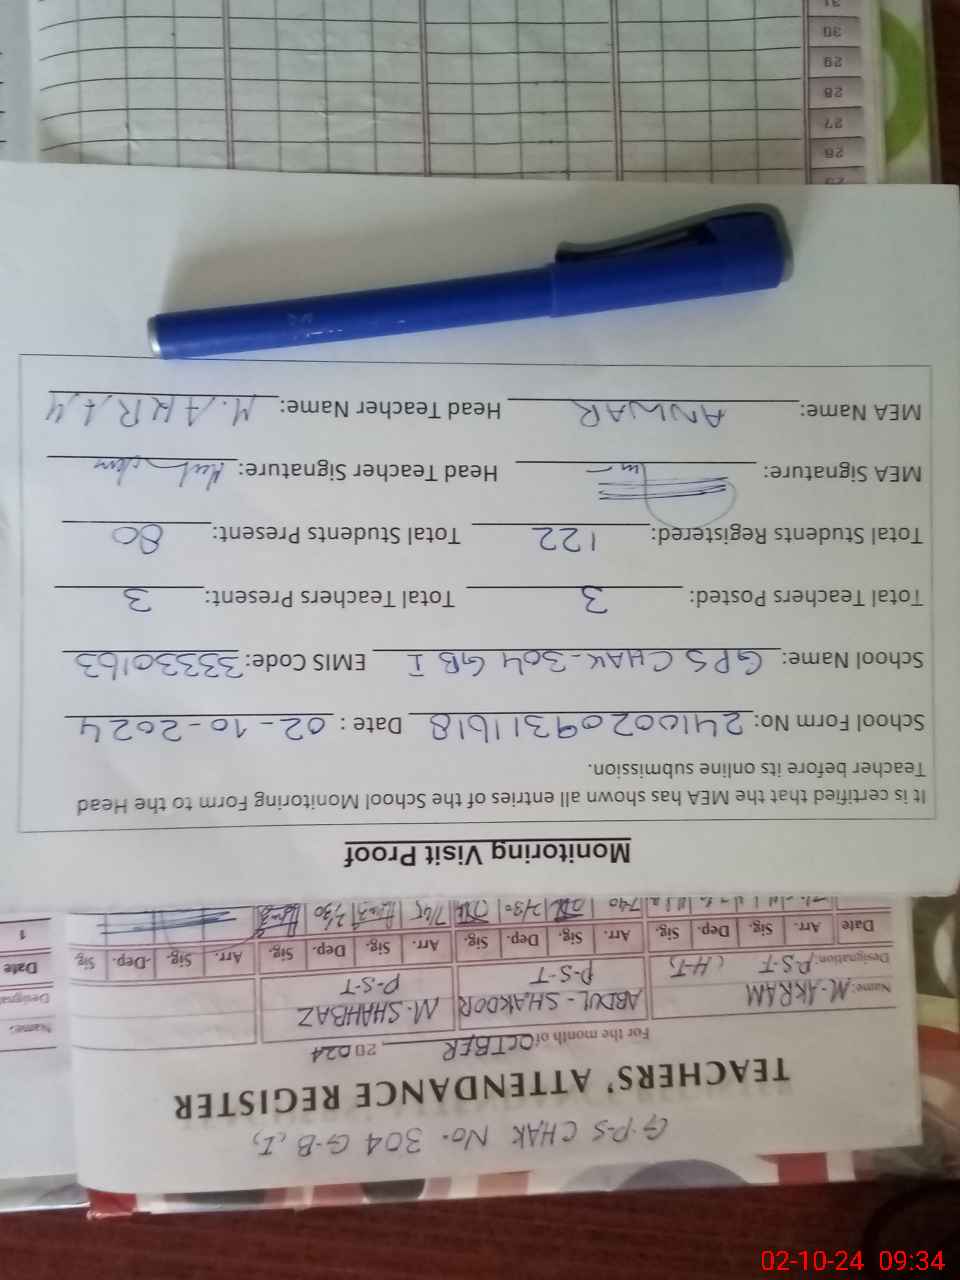 G.P.S CHAK No. 304 G.B, I,
TEACHERS' ATTENDANCE REGISTER
For the month of OCTBER 2024
Name: M. AKRAM ABDUL-SHAKOOR M. SHAHBAZ
Designation: P.S.T (H-T) P-S-T P-S-T
Date Arr. Sig. Dep. Sig. Arr. Sig. Dep. Sig. Arr. Sig. Dep. Sig. Arr. Sig. Dep. Sig.
740 2/30 7/45 2/30
Name:
Date
1
Monitoring Visit Proof
It is certified that the MEA has shown all entries of the School Monitoring Form to the Head
Teacher before its online submission.
School Form No: 24100209311618 Date : 02-10-2024
School Name: GPS CHAK-304 GB I EMIS Code: 33330163
Total Teachers Posted: 3 Total Teachers Present: 3
Total Students Registered: 122 Total Students Present: 80
MEA Signature: Head Teacher Signature:
MEA Name: ANWAR Head Teacher Name: M. AKRAM
26
27
28
29
30
31
02-10-24 09:34